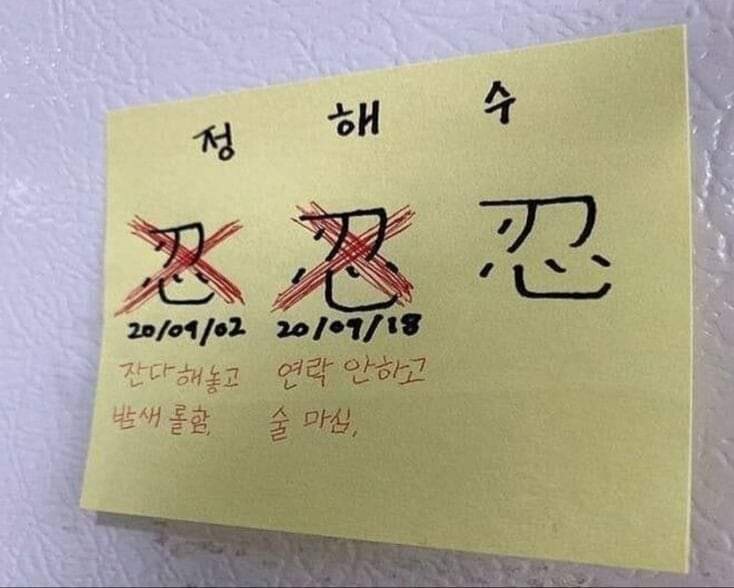 정 해 수
忍 忍 忍
20/09/02 20/09/18
잔다해놓고 연락 안하고
밤새 롤함, 술 마심,